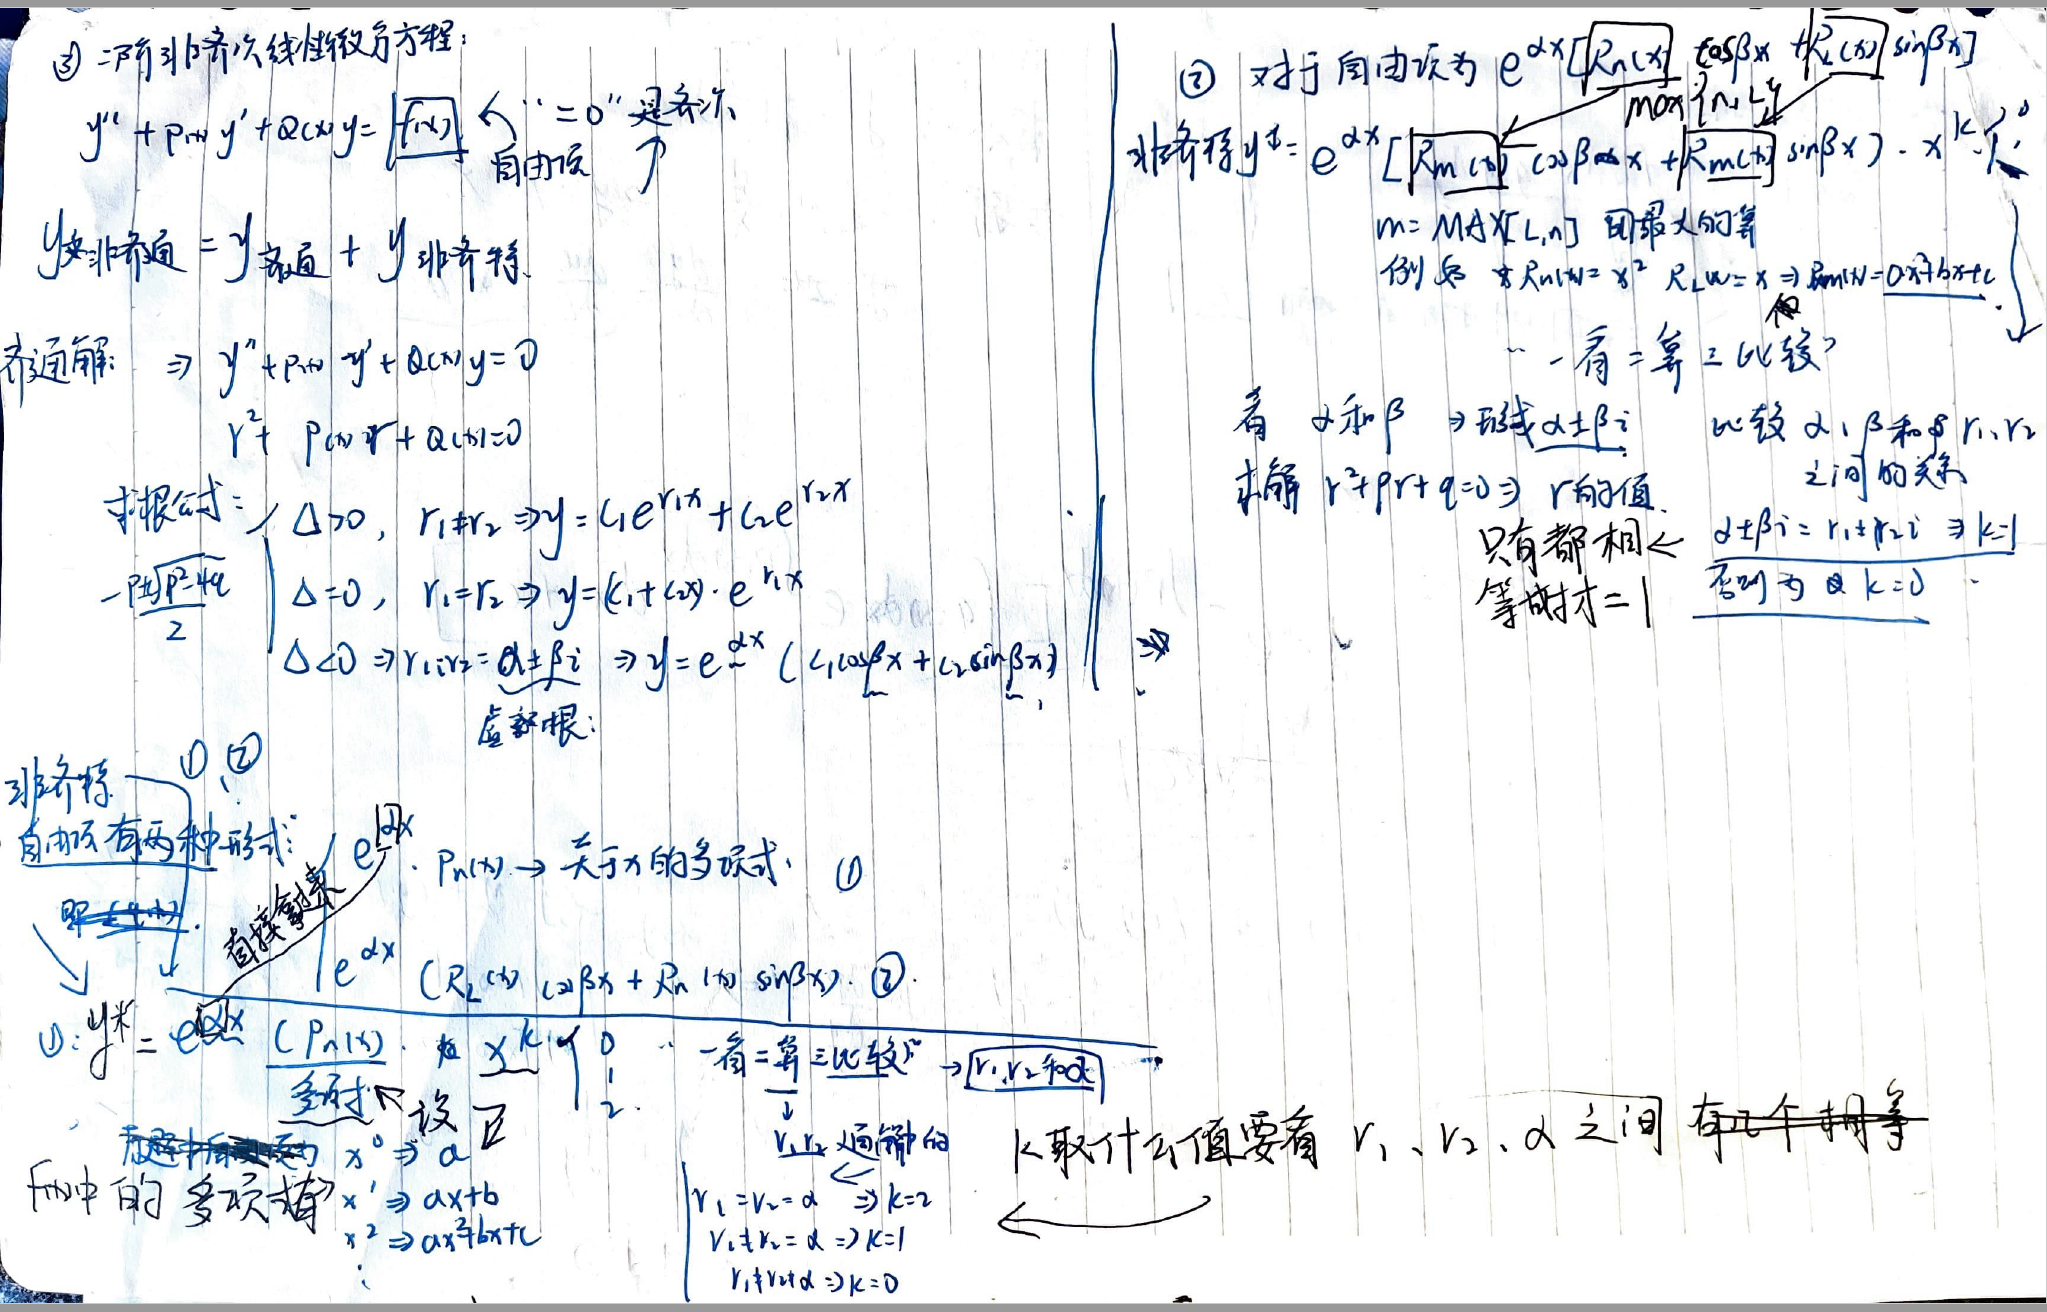 ③ 二阶非齐次线性微分方程:
y'' + P(x) y' + Q(x) y = f(x) ← "=0" 是齐次
自由项
y非齐通 = y齐通 + y非齐特.
齐通解: ⇒ y'' + P(x) y' + Q(x) y = 0
r² + P(x) r + Q(x) = 0
求根公式:
-P±√P²-4q / 2
Δ>0, r₁≠r₂ ⇒ y = C₁e^r₁x + C₂e^r₂x
Δ=0, r₁=r₂ ⇒ y = (C₁+C₂x)·e^r₁x
Δ<0 ⇒ r₁,r₂ = α±βi ⇒ y = e^αx (C₁cosβx + C₂sinβx)
虚数根:
非齐特 ① ②
自由项有两种形式:
e^αx · Pn(x) → 关于x的多项式. ①
直接拿过来
e^αx (R_L(x) cosβx + Rn(x) sinβx). ②.
①: y* = e^αx (Pn(x)) · x^k { 0 1 2.
多项式 ← 设
f(x)中的多项式有
x⁰ ⇒ a
x¹ ⇒ ax+b
x² ⇒ ax²+bx+c
⋮
"一看二算三比较" → r₁,r₂和α
↓
r₁ r₂ 通解中的
r₁=r₂=α ⇒ k=2
r₁≠r₂=α ⇒ k=1
r₁≠r₂≠α ⇒ k=0
k取什么值要看 r₁、r₂、α 之间 有几个相等
② 对于自由项为 e^αx [Rn(x) cosβx + R_L(x) sinβx]
max{n,L}
非齐特 y* = e^αx [Rm(x) cosβx + Rm(x) sinβx] · x^k { 0 1
m = MAX[L,n] 因最大的算
例如 Rn(x) = x² R_L(x) = x ⇒ Rm(x) = ax²+bx+c
"一看二算三比较"
看 α和β → 形成 α±βi
求解 r²+Pr+q=0 ⇒ r的值
比较 α、β和r₁、r₂
之间的关系
α±βi = r₁±r₂i ⇒ k=1
否则为 k=0
只有都相
等时才=1